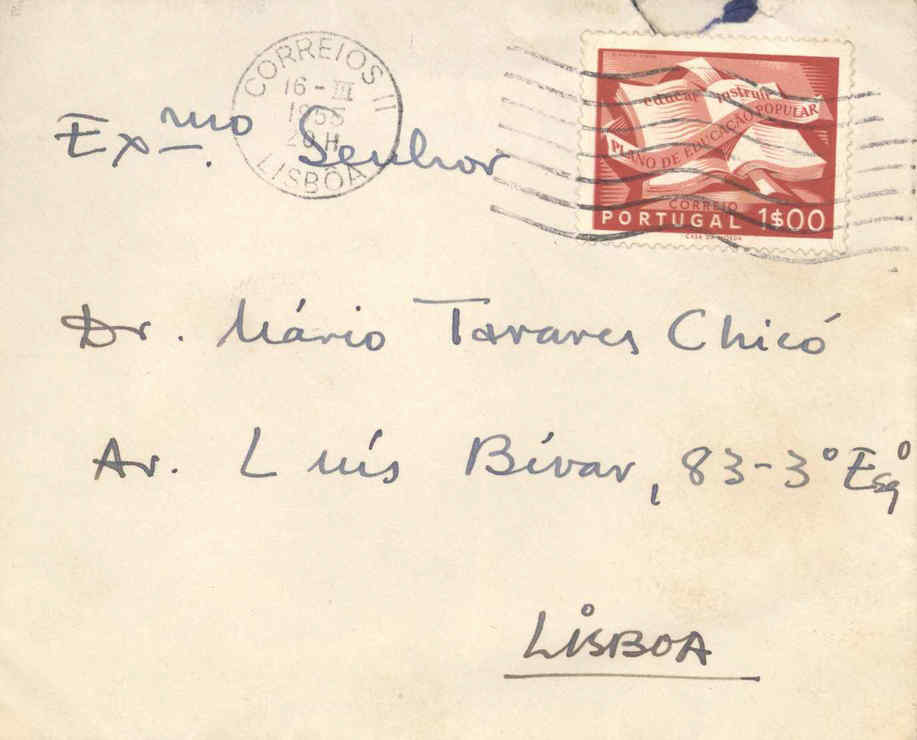 CORREIOS II
16 - III
LISBOA
educar instruir
PLANO DE EDUCAÇÃO POPULAR
CORREIO
PORTUGAL 1$00
CASA DA MOEDA
Exmo. Senhor
Dr. Mário Tavares Chicó
Av. Luís Bívar, 83-3º Esqº
LISBOA